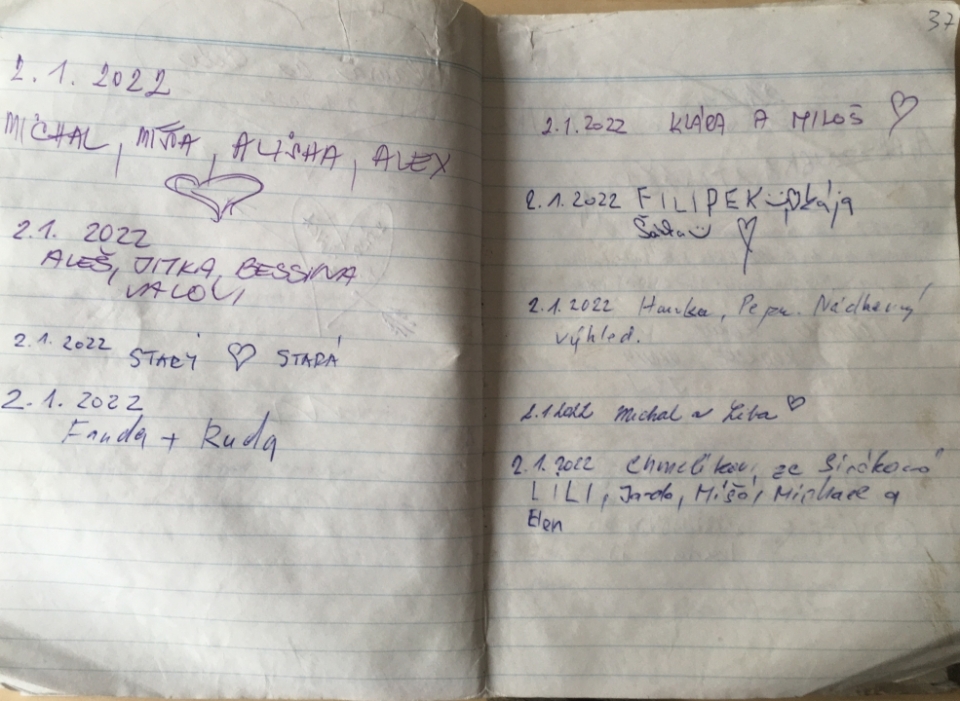 2.1.2022
MICHAL, MÍŠA, ALISHA, ALEX
2.1. 2022
ALEŠ, JITKA, BESSINA
VALOVI
2.1.2022 STARÝ ♡ STARÁ
2.1.2022
Fanda + Ruda
37
2.1.2022 KLÁRA A MILOŠ ♡
2.1.2022 FILIPEK Kája
♡
2.1.2022 Hanka, Pepa. Nádherný
výhled.
2.1.2022 Michal a Liba ♡
2.1.2022 Chmelíkovi ze
LILI, Jarda, Míšo, a
Elen